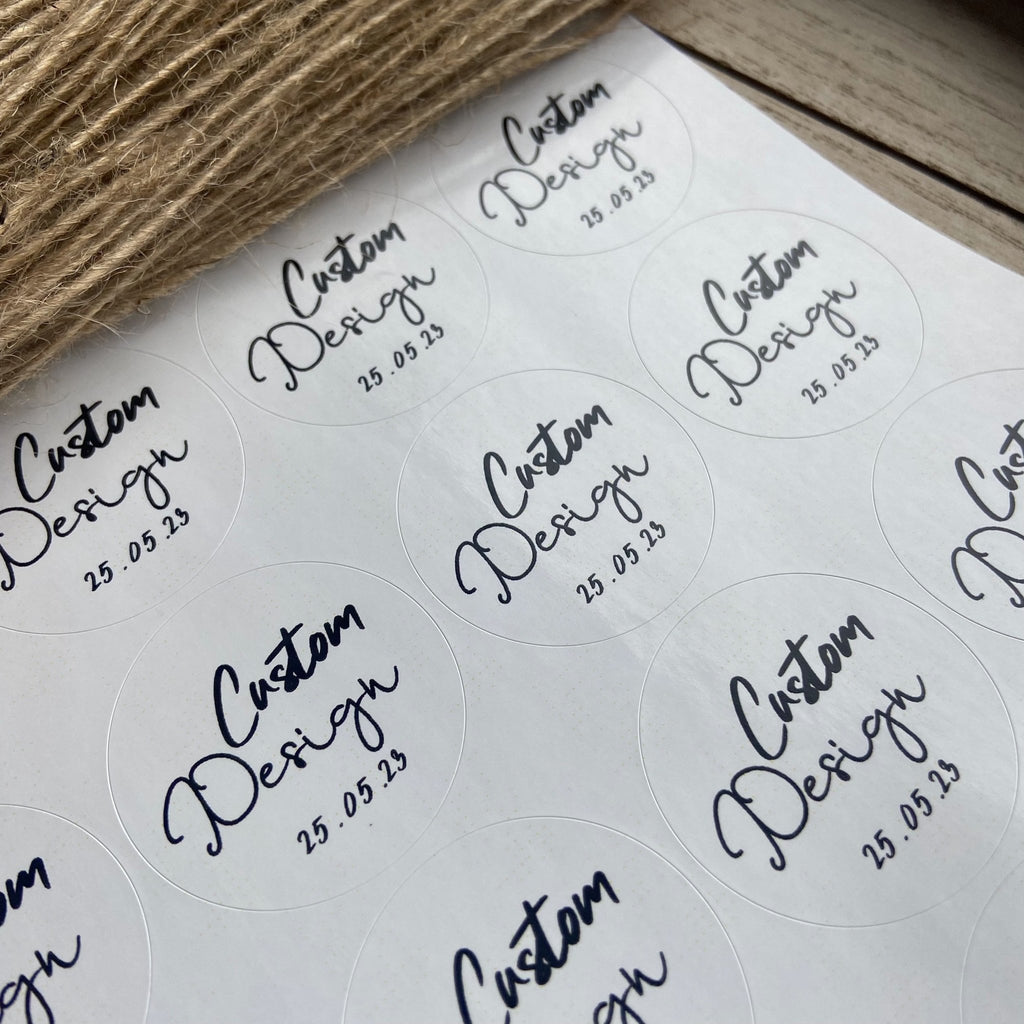 Custom
Design
25.05.23
Custom
Design
25.05.23
Custom
Design
25.05.23
Custom
Design
25.05.23
Custom
Design
25.05.23
Custom
Design
25.05.23
Custom
Design
25.05.23
Custom